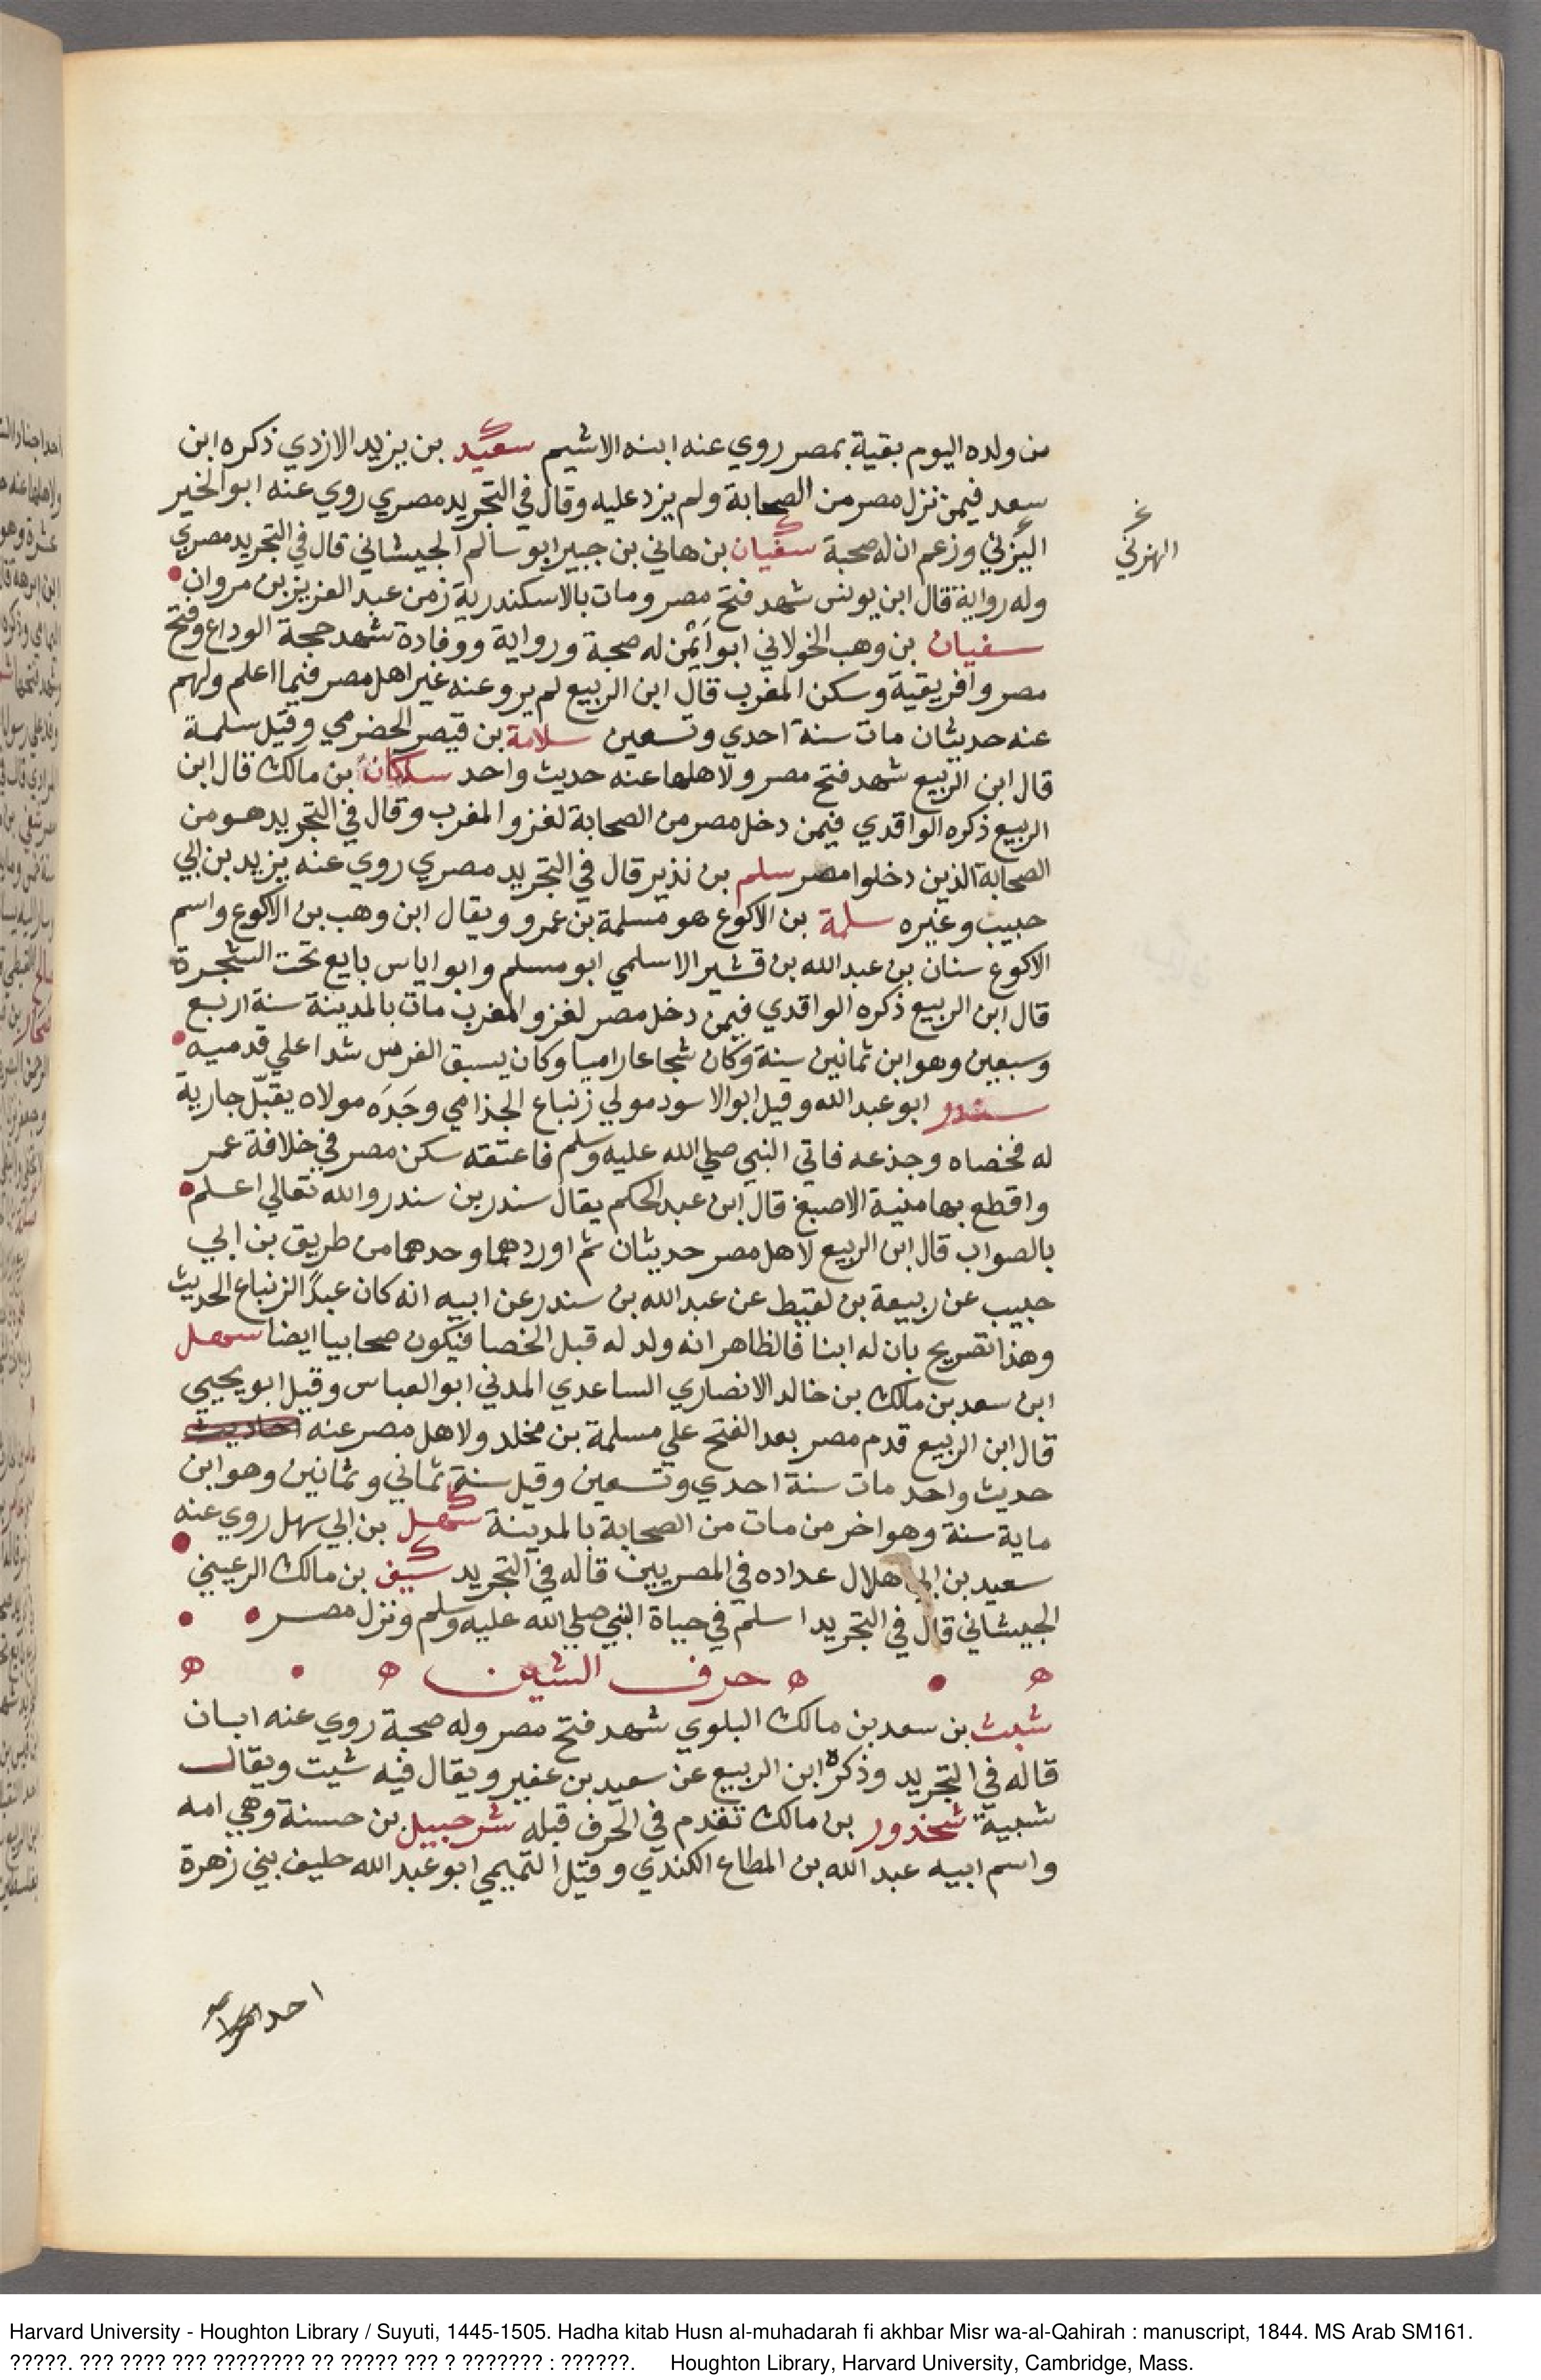 من ولده اليوم بقية بمصر روي عنه ابنه الاشيم سعيد بن يزيد الازدي ذكره ابن
سعد فيمن نزل مصر من الصحابة ولم يزد عليه وقال في التجريد مصري روي عنه ابو الخير
اليزني وزعم ان له صحبة سفيان بن هاني بن جبير ابو سالم الجيشاني قال في التجريد مصري
وله رواية قال ابن يونس شهد فتح مصر ومات بالاسكندرية زمن عبد العزيز بن مروان
سفيان بن وهب الخولاني ابو أيمن له صحبة ورواية ووفادة شهد حجة الوداع وفتح
مصر وافريقية وسكن المغرب قال ابن الربيع لم يرو عنه غير اهل مصر فيما اعلم ولهم
عنه حديثان مات سنة احدي وتسعين سلامة بن قيصر الحضرمي وقيل سلمة
قال ابن الربيع شهد فتح مصر ولاهلها عنه حديث واحد سلكان بن مالك قال ابن
الربيع ذكره الواقدي فيمن دخل مصر من الصحابة لغزو المغرب وقال في التجريد هو من
الصحابة الذين دخلوا مصر سلم بن نذير قال في التجريد مصري روي عنه يزيد بن ابي
حبيب وغيره سلمة بن الاكوع هو مسلمة بن عمرو ويقال ابن وهب بن الاكوع واسم
الاكوع سنان بن عبد الله بن قشير الاسلمي ابو مسلم وابو اياس بايع تحت الشجرة
قال ابن الربيع ذكره الواقدي فيمن دخل مصر لغزو المغرب مات بالمدينة سنة اربع
وسبعين وهو ابن ثمانين سنة وكان شجاعا راميا وكان يسبق الفرس شدا علي قدميه
سندر ابو عبد الله وقيل ابو الاسود مولي زنباع الجذامي وجَدَه مولاه يقبّل جارية
له فخصاه وجذعه فاتي النبي صلي الله عليه وسلم فاعتقه سكن مصر في خلافة عمر
واقطع بها منية الاصبغ قال ابن عبد الحكم يقال سندر بن سندر والله تعالي اعلم
بالصواب قال ابن الربيع لاهل مصر حديثان ثم اوردهما وحدهما من طريق بن ابي
حبيب عن ربيعة بن لقيط عن عبد الله بن سندر عن ابيه انه كان عبدًا لزنباع الحديث
وهذا تصريح بان له ابنا فالظاهر انه ولد له قبل الخصا فيكون صحابيا ايضا سهل
ابن سعد بن مالك بن خالد الانصاري الساعدي المدني ابو العباس وقيل ابو يحيي
قال ابن الربيع قدم مصر بعد الفتح علي مسلمة بن مخلد ولاهل مصر عنه احاديث
حديث واحد مات سنة احدي وتسعين وقيل سنة ثماني وثمانين وهو ابن
ماية سنة وهو اخر من مات من الصحابة بالمدينة سهل بن ابي سهل روي عنه
سعيد بن ابي هلال عداده في المصريين قاله في التجريد سيف بن مالك الرعيني
الجيشاني قال في التجريد اسلم في حياة النبي صلي الله عليه وسلم ونزل مصر
حرف الشين
شبث بن سعد بن مالك البلوي شهد فتح مصر وله صحبة روي عنه ابان
قاله في التجريد وذكره ابن الربيع عن سعيد بن عفير ويقال فيه شيت ويقال
شبية شخدور بن مالك تقدم في الحرف قبله شرحبيل بن حسنة وهي امه
واسم ابيه عبد الله بن المطاع الكندي وقيل التميمي ابو عبد الله حليف بني زهرة
احد
Harvard University - Houghton Library / Suyuti, 1445-1505. Hadha kitab Husn al-muhadarah fi akhbar Misr wa-al-Qahirah : manuscript, 1844. MS Arab SM161.
?????. ??? ???? ??? ???????? ?? ????? ??? ? ??????? : ??????. Houghton Library, Harvard University, Cambridge, Mass.